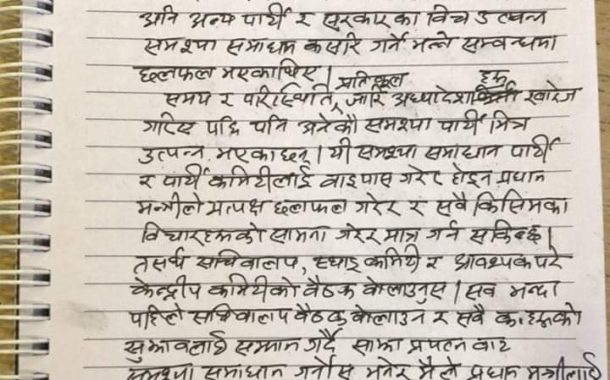 अनि अन्य पार्टी र सरकारका विच उत्पन्न
समस्या समाधान कसरि गर्ने भन्ने सम्वन्धमा
छलफल भएकाथिए ।
प्रतिकूल हरू
समय र परिस्थिति, जारि अध्यादेश खारेज
गरिए पछि पनि अनेकौ समस्या पार्टी भित्र
उत्पन्न भएकाछन् । यी समस्या समाधान पार्टी
र पार्टी कमिटीलाई वाइपास गरेर होइन प्रधान
मन्त्रीले प्रत्यक्ष छलफल गरेर र सवै किसिमका
विचारहरूको सामना गरेर मात्र गर्न सकिन्छ ।
तसर्थ सचिवालय, स्थाइ कमिटी र आवश्यक परे
केन्द्रीय कमिटीको वैठक वोलाउनुस । सव भन्दा
पहिले सचिवालय वैठक वोलाउन र सवै क. हरूको
सुझावलाई सम्मान गर्दै साझा प्रयत्न वाट
समस्या समाधान गर्नोस भनेर मैले प्रधान मन्त्रीलाई